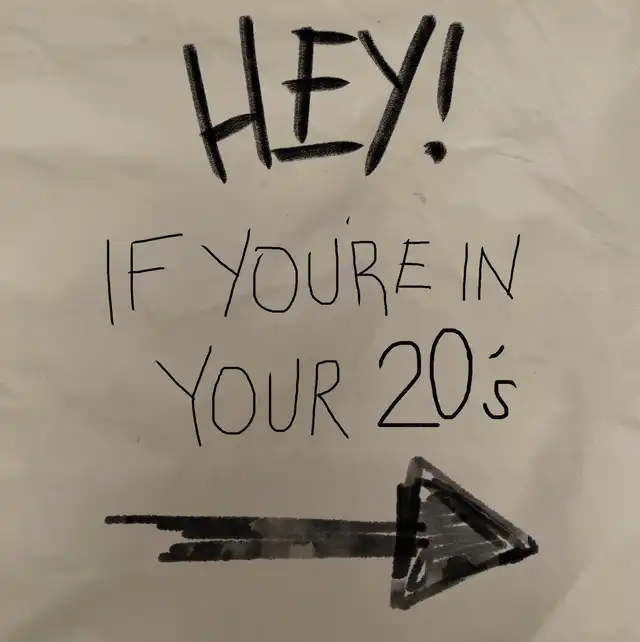 HEY!
IF YOU'RE IN
YOUR 20's